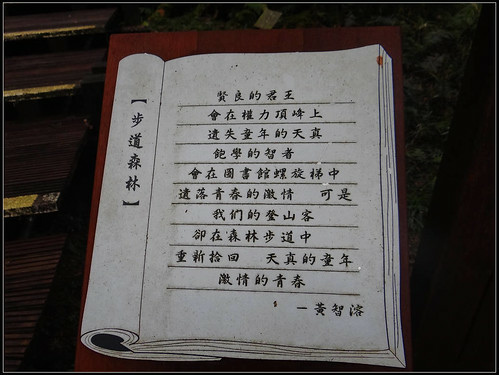 【步道森林】
賢良的君王
會在權力頂峰上
遺失童年的天真
飽學的智者
會在圖書館螺旋梯中
遺落青春的激情 可是
我們的登山客
卻在森林步道中
重新拾回 天真的童年
激情的青春
—黃智溶